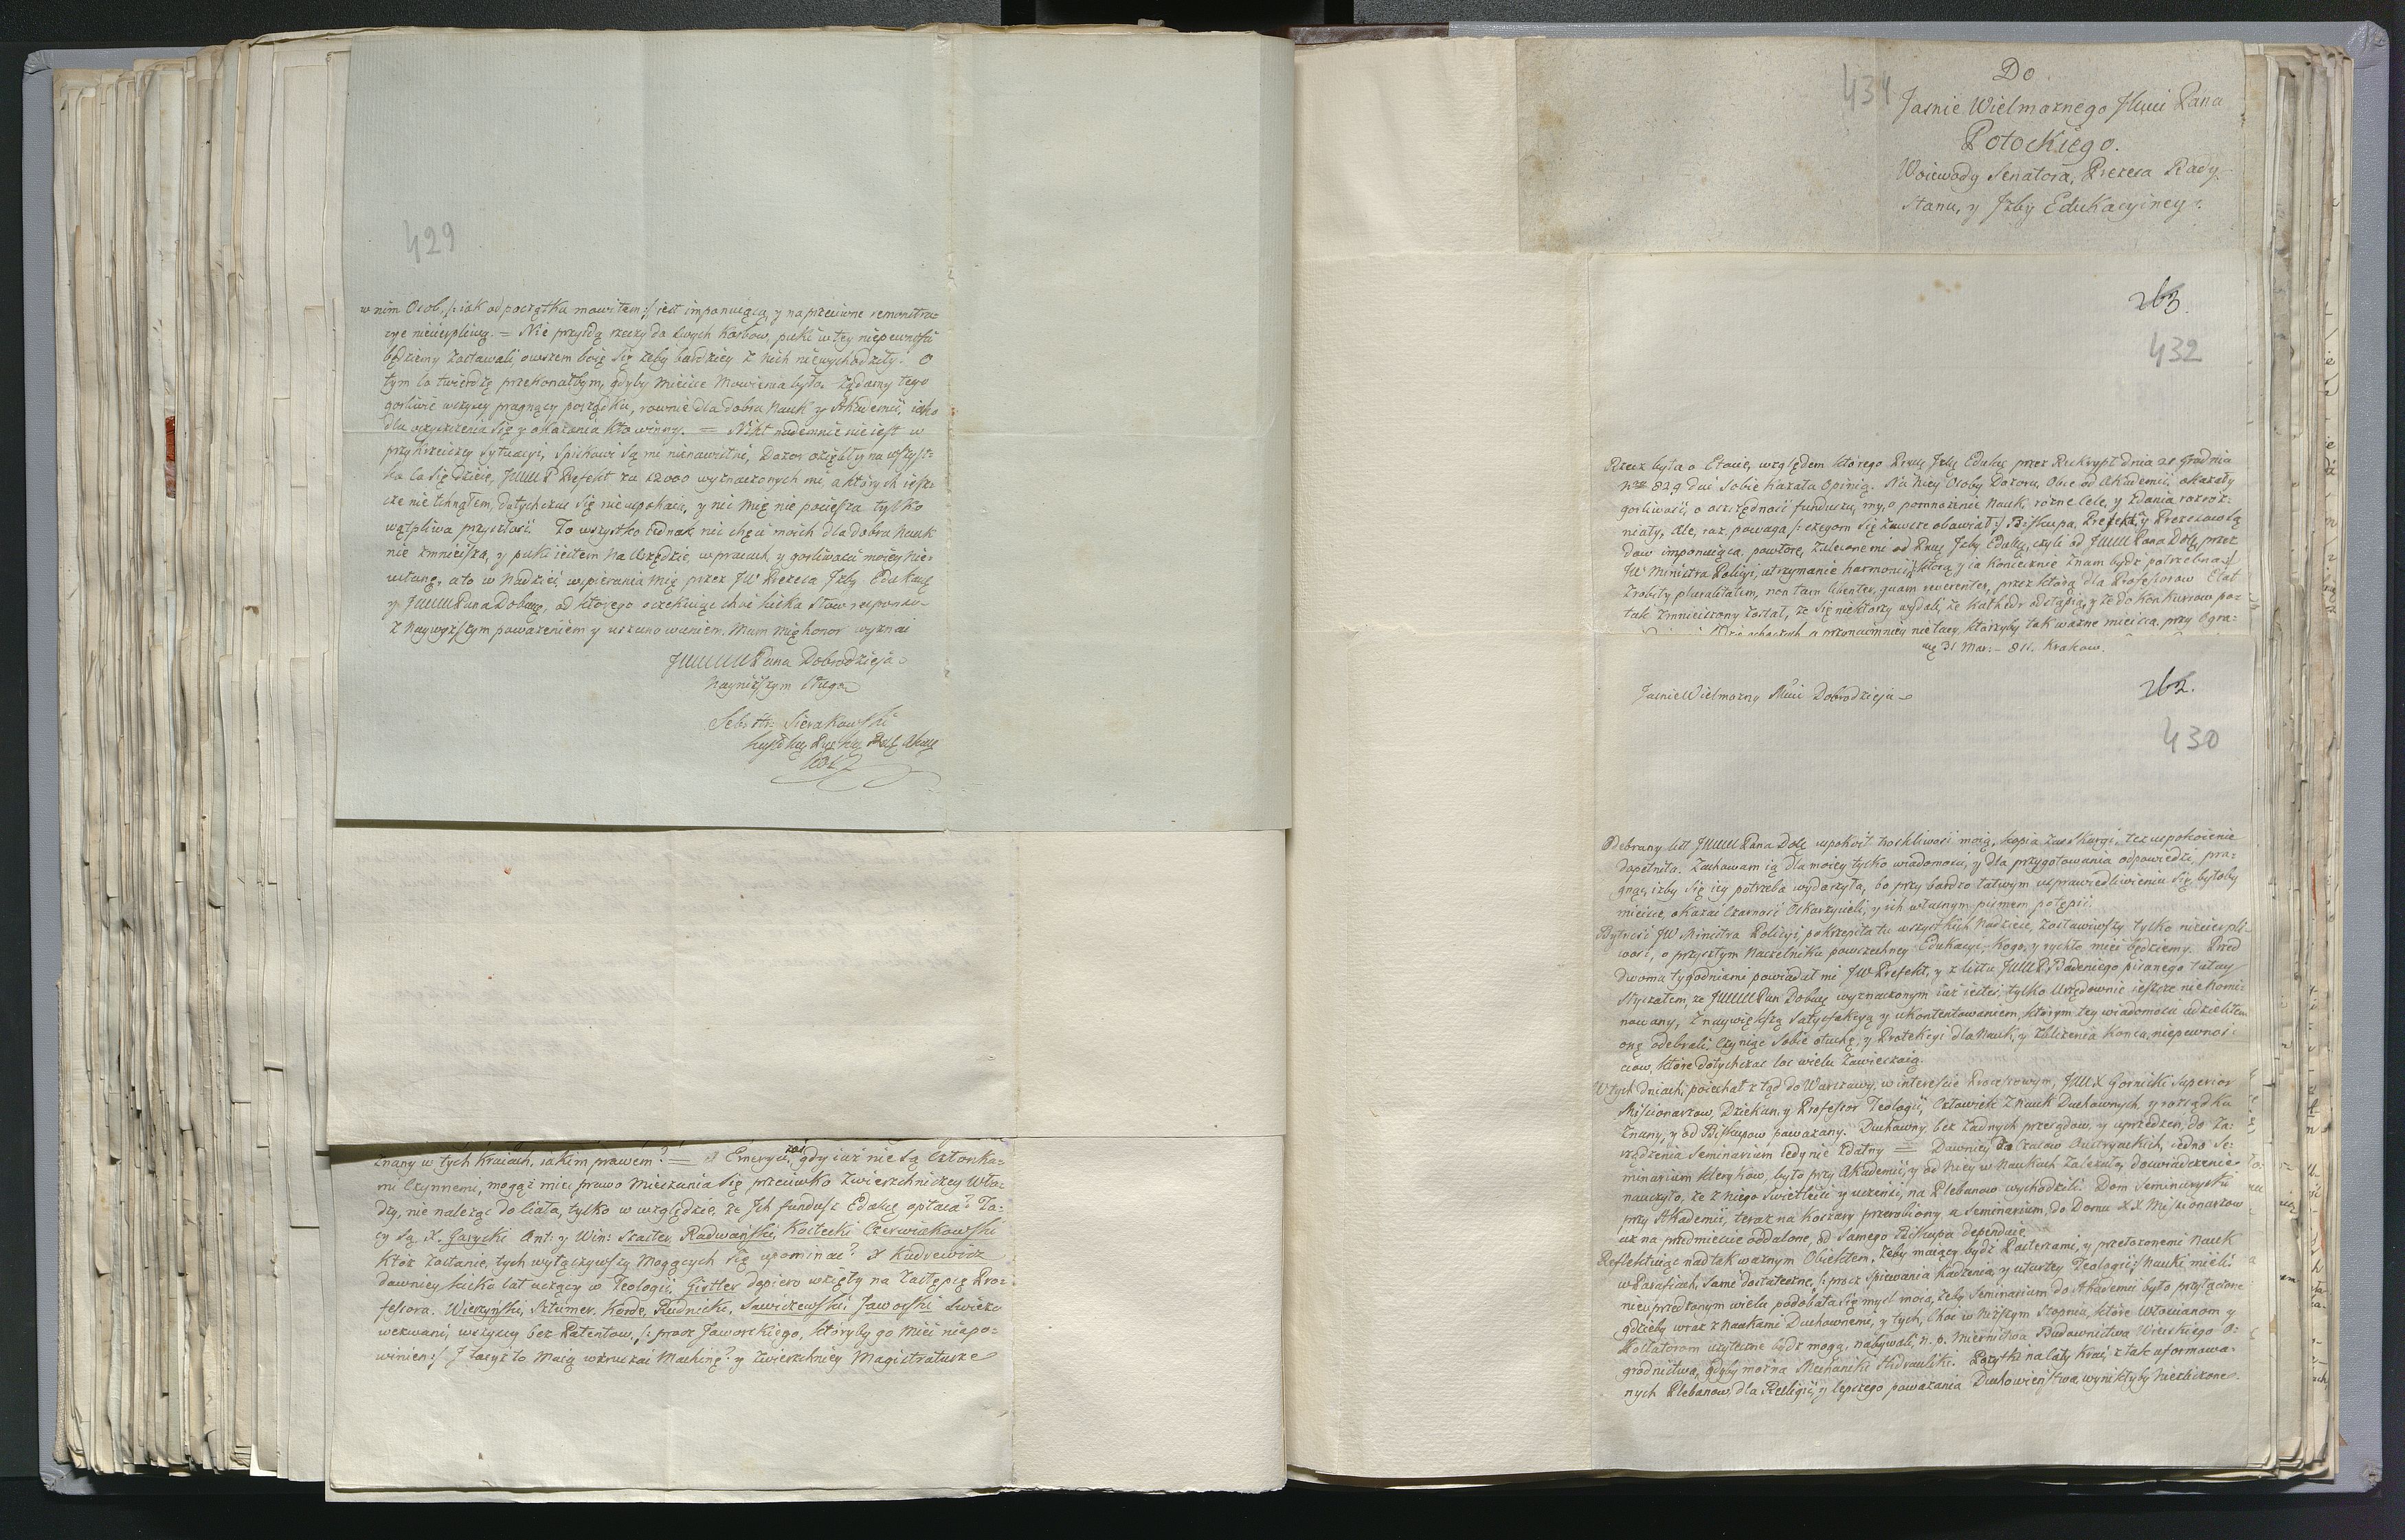 429
w nim Osob, /: iak od początku mowiłem :/ iest imponuiąca, y na przeciwne remonstra=
cye niecierpliwą. = Nie przyidą rzeczy do swych Karbow, puki w tey niepewności
będziemy zostawali, owszem boię się żeby bardziey z nich niewychodziły. O
tym co twierdzę przekonałbym, gdyby mieisce mowienia było. Żądamy tego
gorliwie wszyscy pragnący porządku, rownie dla dobra Nauk y Akademii, iako
dla oczyszczenia się y okazania kto winny. = Nikt nademnie nie iest w
przykrzeiszey sytuacyi, Spiskowi są mi nienawistni, Dozor oziębły na wszyst=
ko co się dzieie, JWW P Prefekt za 12000 wyznaczonych mi, a ktorych iesz=
cze nie tknąłem, dotychczas się nieuspokaia, y nic mię nie pociesza tylko
wątpliwa przyszłość. To wszystko iednak nic chęci moich dla dobra Nauk
nie zmnieisza, y puki iestem na Urzędzie, w pracach y gorliwości moiey nie=
ustanę, a to w Nadziei wspierania mię przez JW Prezesa Izby Edukac
y JWW Pana Dobrze, od ktorego oczekuiąc choć kilka słow responsu
z Naywyższym poważeniem y uszanowaniem Mam mię honor wyznać
JWWW Pana Dobrodzieja
Nayniższym Sługą
Sebast: Sierakowski
znany w tych Kraiach, iakim prawem? = a Emeryci zaś, gdy iuż nie są Członka=
mi Czynnemi, mogąż mieć prawo Mieszania się przeciwko Zwierzchniczey Wła=
dzy, nie należąc do Ciała, tylko w względzie, że Ich fundusz Edukcy opłaca? Ta=
cy są X. Garycki Ant: y Win: Szaster, Radwański, Kostecki Czerwiakowski
Ktoż zostanie, tych wyłączywszy Mogących się upominać? X Kudrewicz
dawniey kilka lat uczący w Teologii, Girtler dopiero wzięty na Zastępcę Pro=
fessora. Wierzyński, Szturmer, Kodde, Rudnicki, Sawiczewski, Jaworski świeżo
wezwani, wszyscy bez Patentow, /: procz Jaworskiego, ktoryby go Mieć niepo=
winien :/ I tacyż to Maią wzruszać Machinę? y Zwierzchniey Magistraturze
431
Do
Jasnie Wielmożnego Jmci Pana
Potockiego.
Woiewody Senatora, Prezesa Rady
Stanu, y Izby Edukacyiney.
263.
432
Rzecz była o Etacie, względem ktorego Izby Edukcy przez Reskrypt dnia 21 Grudnia
829 dać sobie kazała Opinią. Na Niey Osoby Dozoru, Obce od Akademii, okazały
gorliwość, o oszczędność funduszu, my, o pomnożenie Nauk, rożne Cele, y zdania rozroż=
niały, Ale, raz, powaga, /: czegom się zawsze obawiał :/ Biskupa, Prefekta, y Prezesowską
imponuiąca, powtore, zalecone mi od Izby Edukcy, czyli od JWW Pana Dobr, przez
JW Ministra Policyi, utrzymanie harmonii, /: ktorą y ia koniecznie znam bydź potrzebną :/
Zrobiły pluralitatem, non tam libenter, quam reverenter, przez ktorą dla Professorow Etat
tak zmnieiszony został, że się niektorzy wydali, że Kathedr odstąpią, y że do Konkursow po=
a przynaymniey nie tacy, ktorzyby tak ważne mieisca, przy Ogra=
31 Mar: 811. Krakow.
262.
Jasnie Wielmożny Mści Dobrodzieju
430
Odebrany list JWW Pana Dobr uspokoił troskliwość moią, kopia zaś Skargi, też uspokoienie
dopełniła. Zachowam ią dla moiey tylko wiadomości, y dla przygotowania odpowiedzi, pra=
gnąc, iżby się iey potrzeba wydarzyła, bo przy bardzo łatwym usprawiedliwieniu się, byłoby
mieisce, okazać Czarność Oskarżycieli, y ich własnym pismem potępić.
Bytność JW Ministra Policyi, pokrzepiła tu wszystkich Nadzieie, zostawiwszy tylko niecierpli=
wość, o przyszłym Naczelniku powszechney Edukacyi, Kogo, y rychło mieć będziemy. Przed
dwoma tygodniami powiadał mi JW Prefekt, y z listu JWW P. Badeniego pisanego tutay
słyszałem, że JWWW Pan Dobrze wyznaczonym iuż iesteś, tylko Urzędownie ieszcze nie Nomi=
nowany, Z naywiększą Satysfakcyą y ukontentowaniem, ktorym tey wiadomości udzieliłem
onę odebrali, Czyniąc sobie otuchę, y Protekcyi dla Nauk, y zbliżenia końca, niepewnoś=
ciow, ktore dotychczas los wielu zawieszaią.
W tych dniach, poiechał ztąd do Warszawy, w interessie Procesowym, JW X Gornicki Superior
Missionarzow, Dziekan, y Professor Teologii, Człowiek z Nauk Duchownych, y rozsądku
znany, y od Biskupow poważany. Duchowny bez żadnych przesądow, y uprzedzeń, do Za=
rządzenia Seminarium iedynie zdatny = Dawniey do Czasow Austryackich, iedno Se=
minarium klerykow, było przy Akademii, y od Niey w Naukach zależało, doswiadczenie
nauczyło, że z niego świetleisi y uczeńsi, na Plebanow wychodzili. Dom Seminaryiski
przy Akademii, teraz na Koszary przerobiony, a Seminarium, do Domu XX Missionarzow
aż na przedmieście oddalone, od samego Biskupa dependuie.
Reflektuiąc nad tak ważnym Obiektem, żeby maiący bydź Pasterzami, y przełożonemi Nauk
w Parafiach, same dostateczne, /: procz spiewania Kadzenia, y utarczy Teologii :/ Nauki mieli
nieuprzedzonym wielu podobała się mysl moia, żeby Seminarium do Akademii było przyłączone
gdzieby wraz z Naukami Duchownemi, y tych, Choć w Niższym Stopniu, ktore Włoscianom y
Kollatorom użyteczne bydź mogą, nabywali, n. p. Miernictwa Budownictwa Wieyskiego O=
grodnictwa, gdyby można Mechaniki Hidrauliki. Pożytki na cały Kray z tak uformowa=
nych Plebanow, dla Religii, y lepszego poważania Duchowieństwa, wynikłyby Niezliczone.